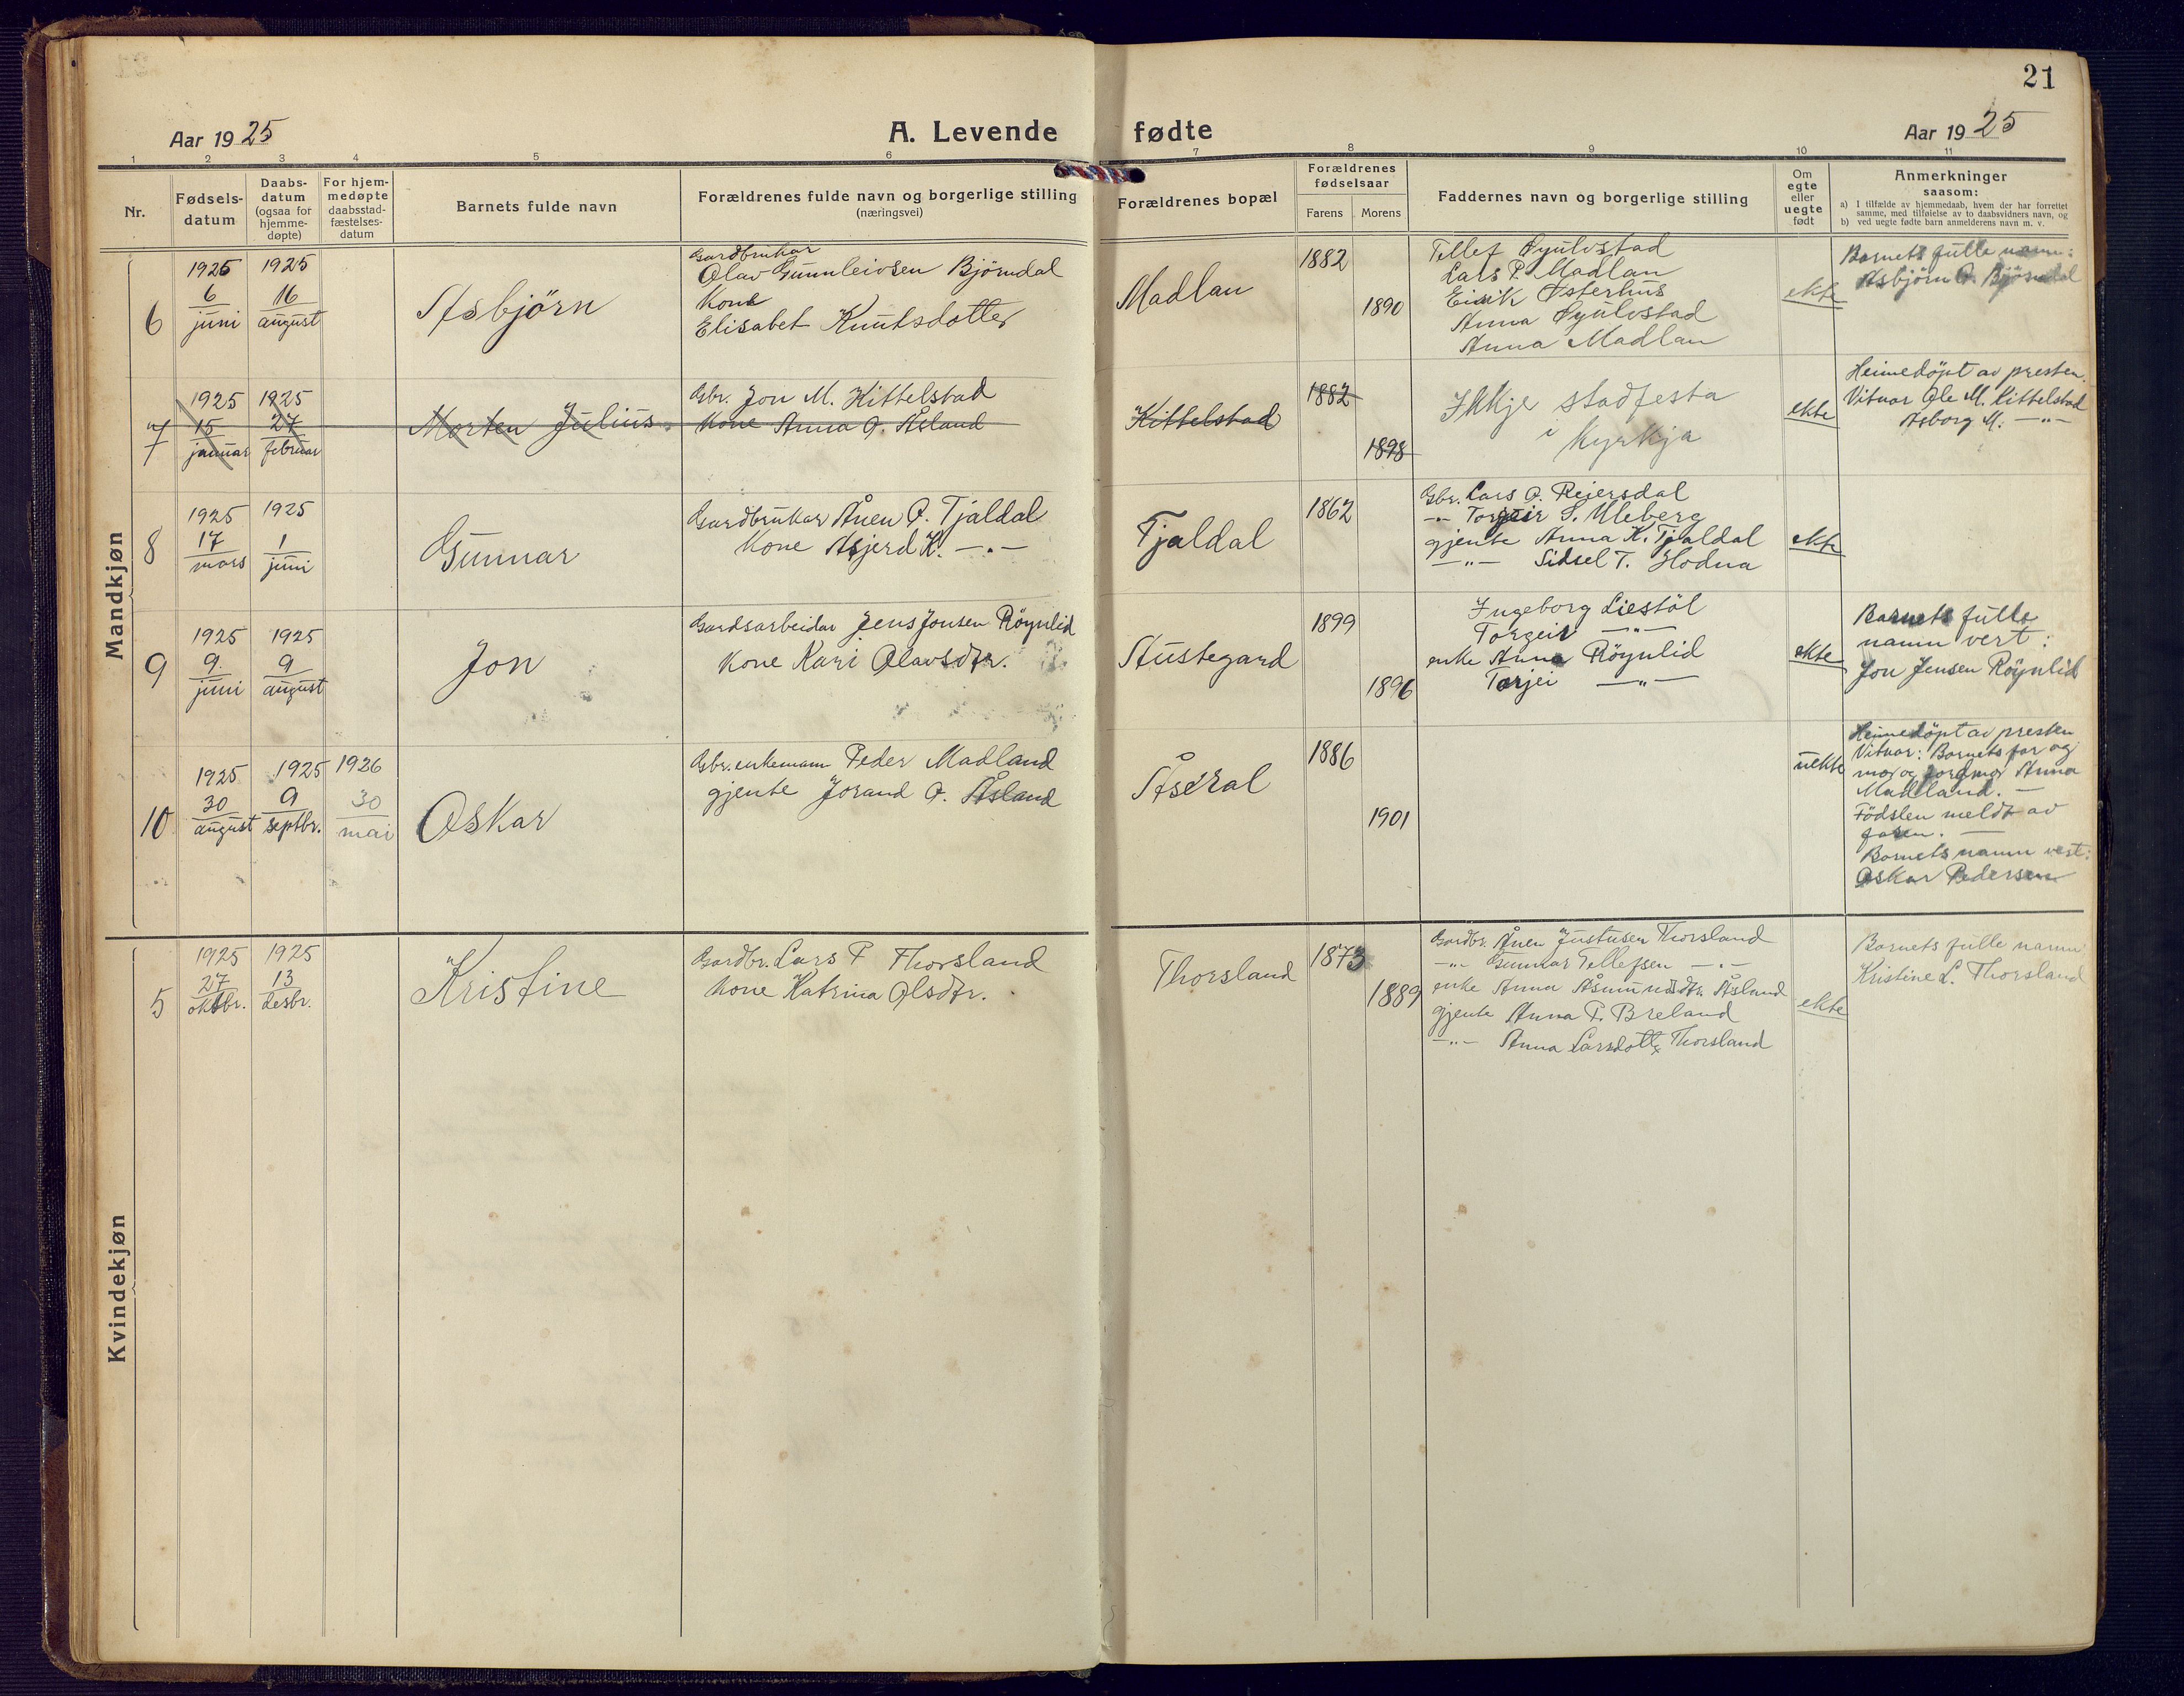 21
Aar 1925
A. Levende fødte
Aar 1925
1 2 3 4 5 6 7 8 9 10 11
Nr.
Fødsels-
datum
Daabs-
datum
(ogsaa for
hjemme-
døpte)
For hjem-
medøpte
daabsstad-
fæstelses-
datum
Barnets fulde navn
Forældrenes fulde navn og borgerlige stilling
(næringsvei)
Forældrenes bopæl
Forældrenes
fødselsaar
Farens Morens
Faddernes navn og borgerlige stilling
Om
egte
eller
uegte
født
Anmerkninger
saasom:
a) I tilfælde av hjemmedaab, hvem der har forrettet
samme, med tilføielse av to daabsvidners navn, og
b) ved uegte fødte barn anmelderens navn m. v.
Mandkjøn
6
1925
6
juni
1925
16
august
Asbjörn
Gardbrukar
Olav Gunnleivsen Björndal
Kone
Elisabet Knutsdotter
Madlan
1882
1890
Tellef Øyulvstad
Lars P. Madlan
Eirik Østerhus
Anna Øyulvstad
Anna Madlan
ekte
Barnets fulle namn:
Asbjörn O. Björndal
7
1925
15
januar
1925
27
februar
Morten Julius
Gbr. Jon M. Kittelstad
Kone Anna O. Åsland
Kittelstad
1882
1898
Ikkje stadfesta
i kyrkja
ekte
Heimedöpt av presten.
Vitnar Ole M. Kittelstad
Asborg M. —"—
8
1925
17
mars
1925
1
juni
Gunnar
Gardbrukar Ånen O. Tjaldal
Kone Asjerd K. —"—
Tjaldal
1862
Gbr. Lars O. Reiersdal
—"— Torgeir S. Uleberg
gjente Anna K. Tjaldal
—"— Sidsel T. Hodna
ekte
9
1925
9
juni
1925
9
august
Jon
Gardsarbeidar Jens Jonsen Röynlid
Kone Kari Olavsdtr.
Austegard
1899
1896
Ingeborg Liestöl
Torgeir —"—
enke Anna Röynlid
Torjei —"—
ekte
Barnets fulle
namn vert:
Jon Jensen Röynlid
10
1925
30
august
1925
9
septbr.
1926
30
mai
Oskar
Gbr. enkemann Peder Madland
gjente Jorand O. Åsland
Åseral
1886
1901
uekte
Heimedöpt av presten
Vitnar: Barnets far og
mor og jordmor Anna
Madland. —
Födslen meldt av
faren. —
Barnets namn vert:
Oskar Pedersen
Kvindekjøn
5
1925
27
oktbr.
1925
13
desbr.
Kristine
Gardbr. Lars P Thorsland
Kone Katrina Olsdtr.
Thorsland
1873
1889
Gardbr. Ånen Justusen Thorsland
—"— Gunnar Tellefsen —"—
enke Anna Åsmundsdtr. Åsland
gjente Anna P. Breland
—"— Anna Larsdotter Thorsland
ekte
Barnets fulle namn
Kristine L. Thorsland